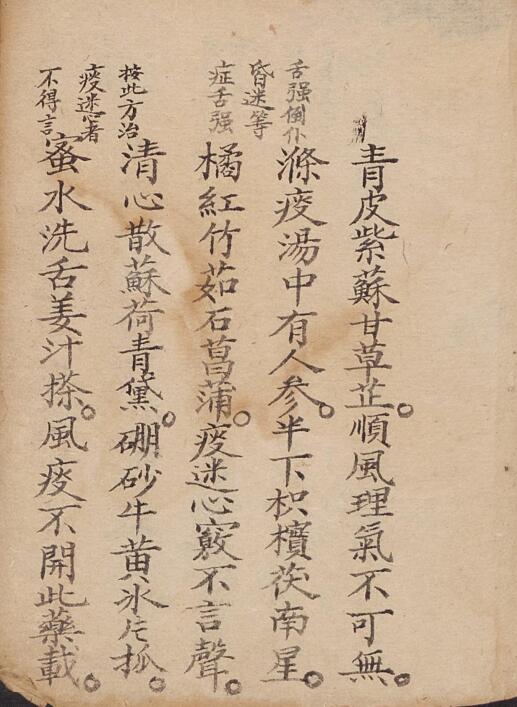 青皮紫蘇甘草芷。順風理氣不可無。
舌强倒仆
昏迷等
症舌强
滌疫湯中有人參。半下枳檳茯南星。
橘紅竹茹石菖蒲。疫迷心竅不言聲。
按此方治
疫迷心者
不得言
清心散蘇荷青黛。硼砂牛黃冰片抓。
蜜水洗舌姜汁搽。風疫不開此藥載。